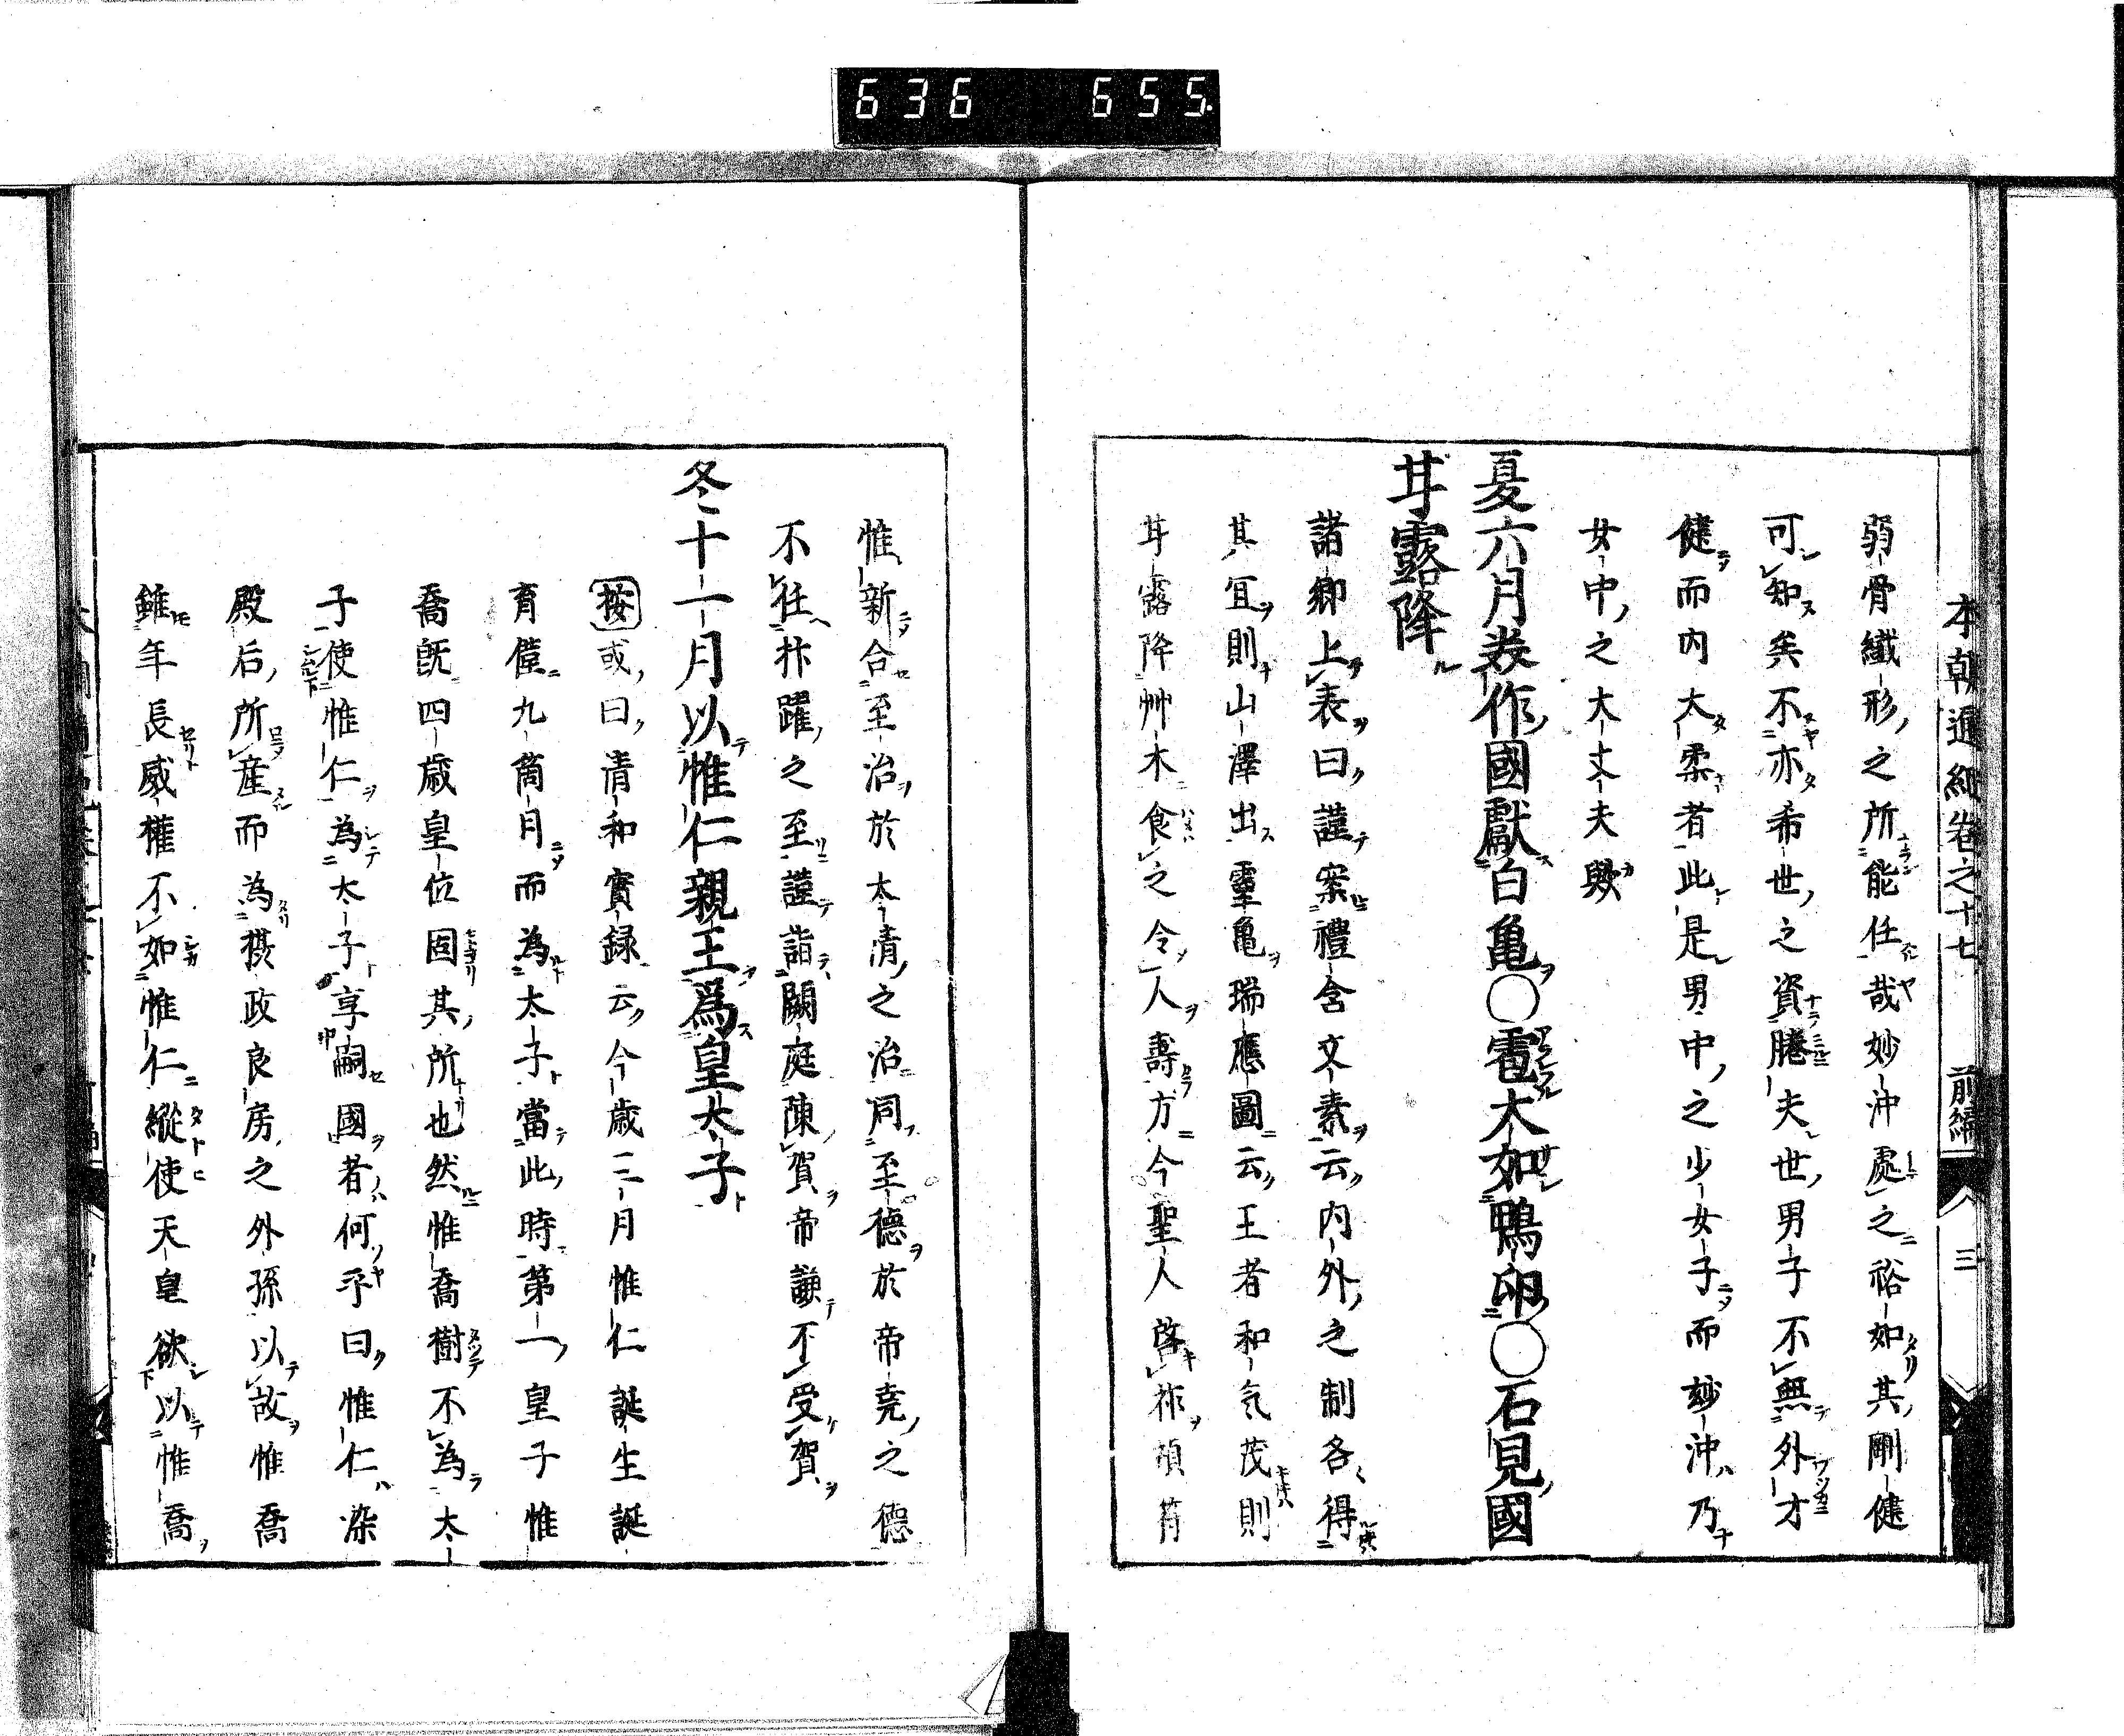 636 655
本朝通紀卷之十七 前編 三
弱骨纖形之所能任哉妙沖處之裕如其剛健
可知矣不亦希世之資賸夫世男子不無外才
健而内大柔者此是男中之少女子而妙沖乃
女中之大丈夫歟
夏六月美作國獻白亀〇雹大如鴨卵〇石見國
甘露降
諸卿上表曰謹案禮含文素云内外之制各得
其宜則山澤出靈亀瑞應圖云王者和氣茂則
甘露降艸木食之令人壽方今聖人啓祚禎符
惟新合至治於太清之治同至德於帝堯之德
不任抃躍之至謹詣闕庭陳賀帝謙不受賀
冬十一月以惟仁親王爲皇太子
按或曰清和實録云今歳三月惟仁誕生誕
育僅九箇月而為太子當此時第一皇子惟
喬既四歳皇位固其所也然惟喬樹不為太
子使惟仁為太子享嗣國者何乎曰惟仁染
殿后所産而為摂政良房之外孫以故惟喬
雖年長威權不如惟仁縱使天皇欲以惟喬